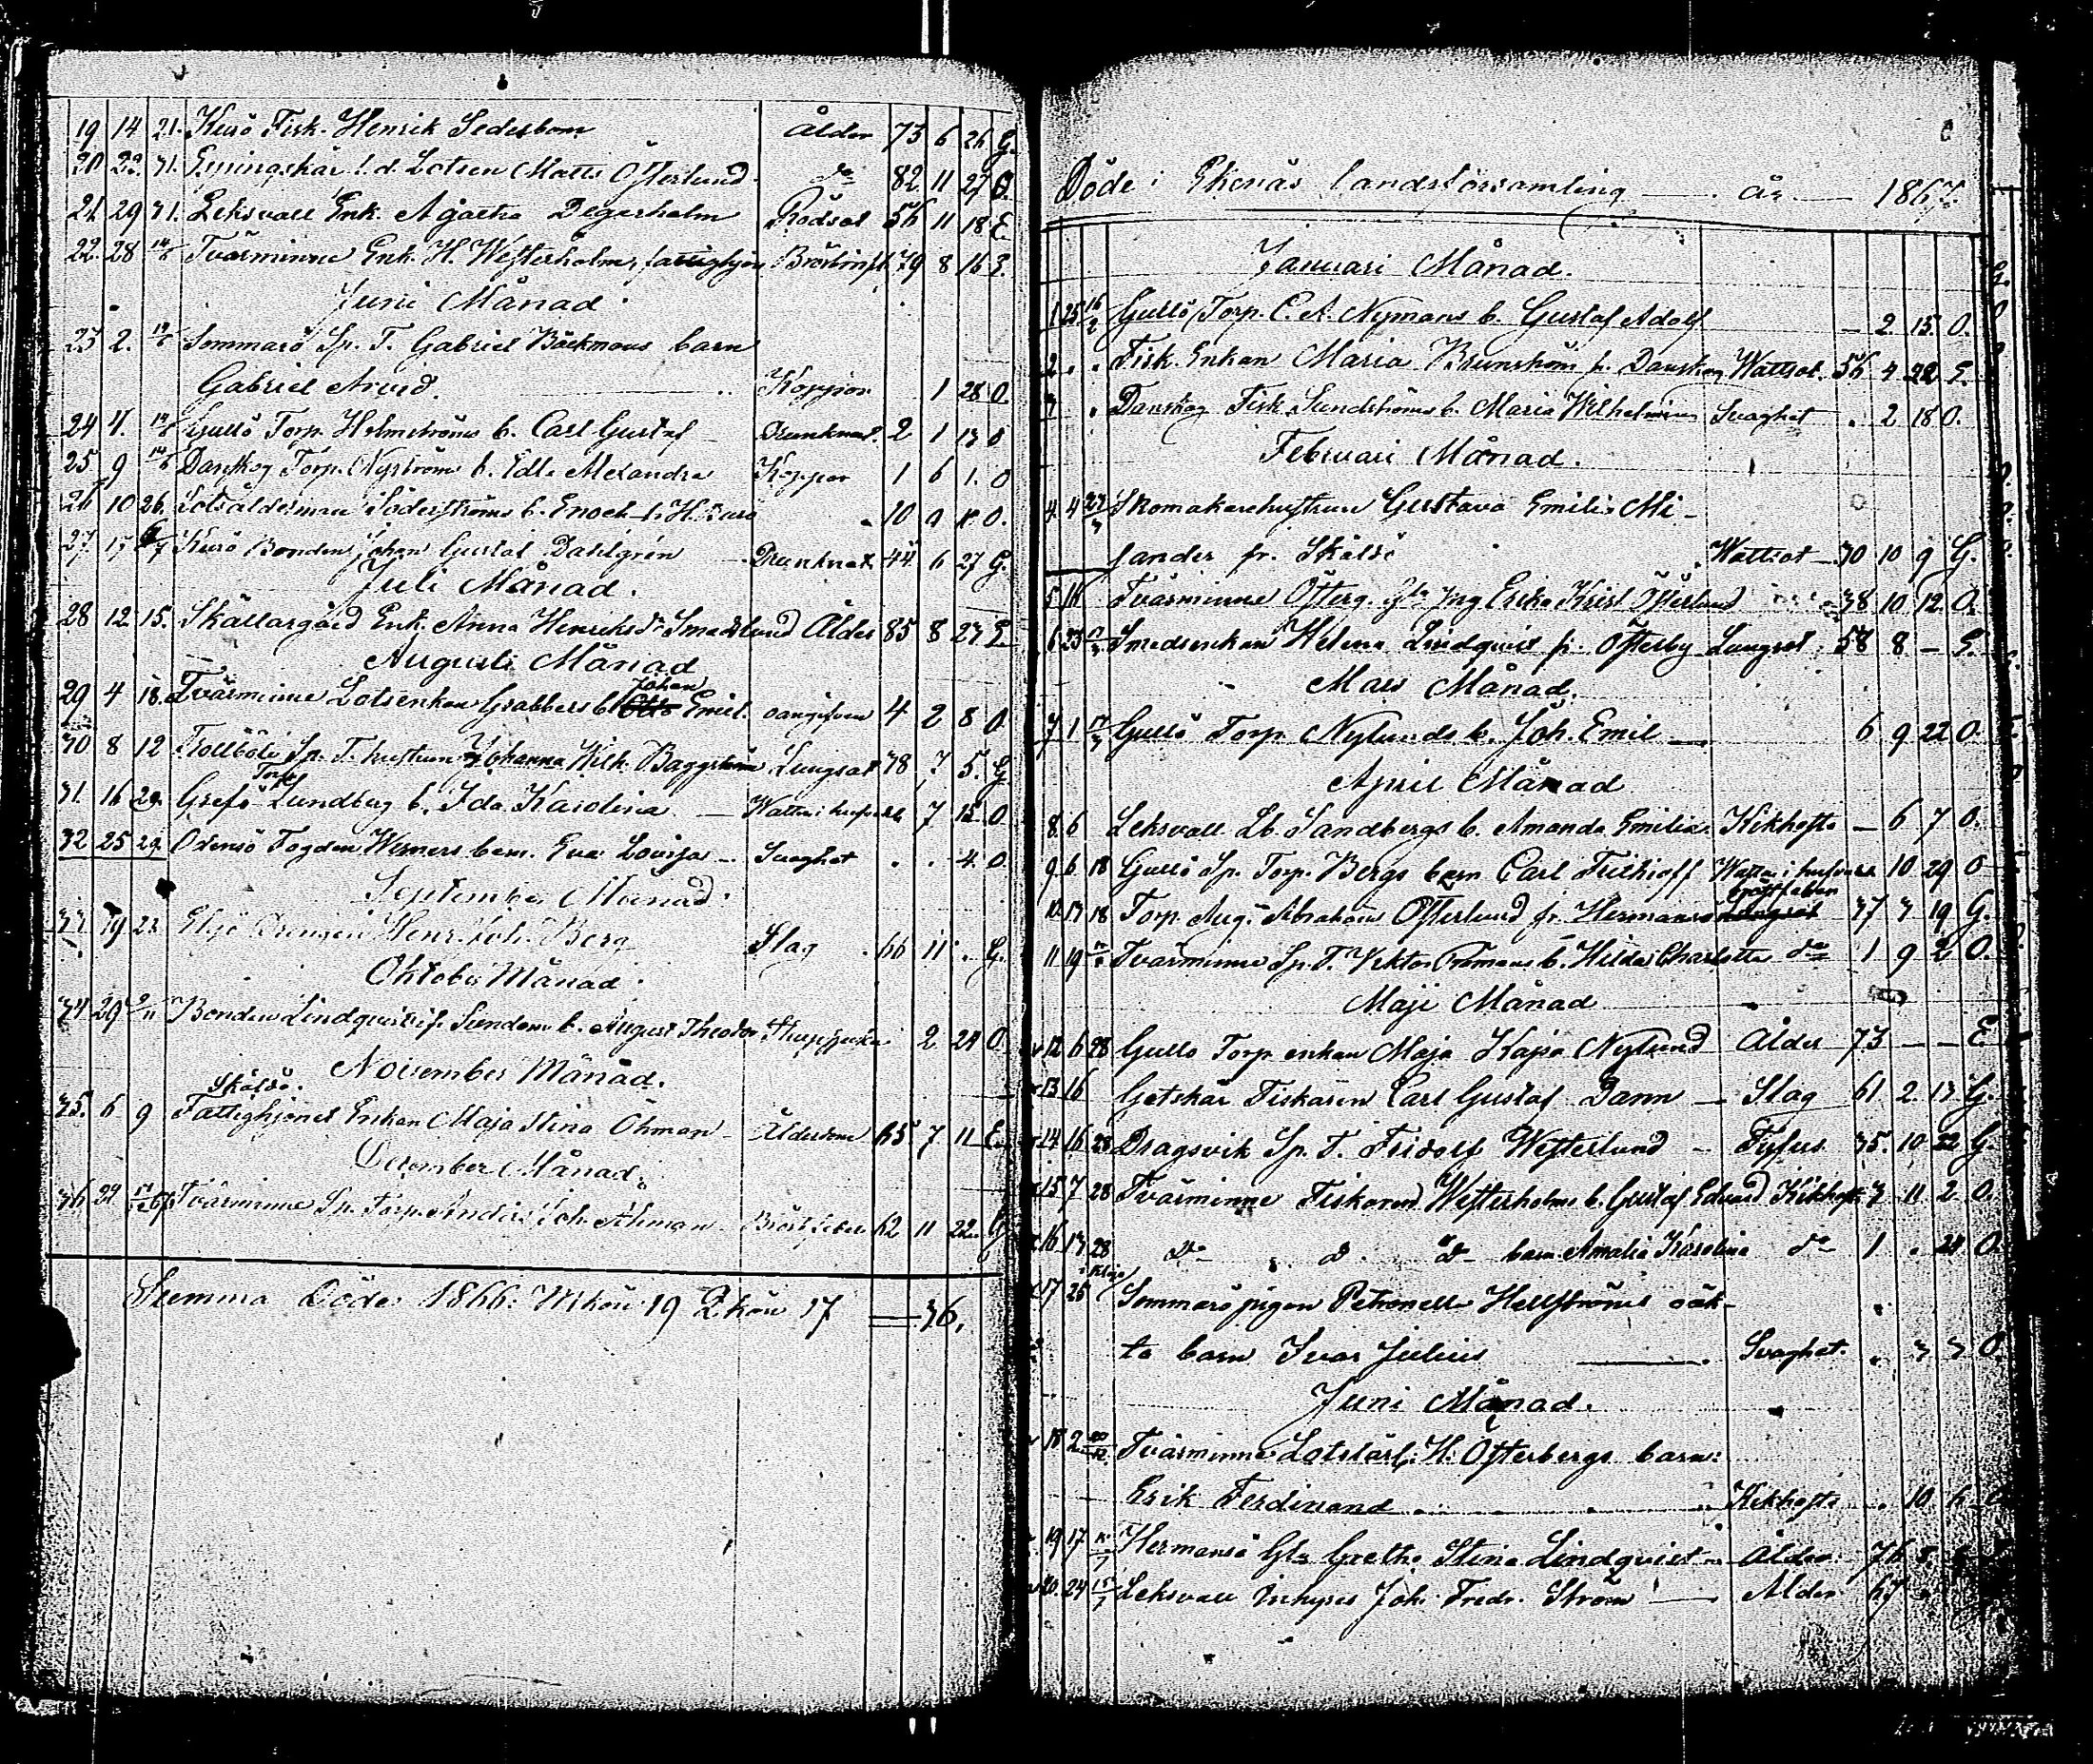 19 14 21. Kusö Fisk. Henrik Sederbom Ålder 73 6 26 G.
20 22. 31. f. d. Lotsen Matts Österlund do 82 11 27 G.
21. 29 31. Leksvall Enk. Agatha Degerholm Rödsot 56 11 18 E.
22. 28 14/6 Tvärminne Enk. H. Westerholm, fattighjon Bröstinfl. 79 8 16 E.
Juni Månad.
23 2. Sommarö Sp. T. Gabriel Bäckmans barn
Gabriel Arvid. Koppor 1 28 O.
24 4. 14/6 Gullö Torp. Holmströms b. Carl Gustaf Drunknat. 2 1 13 O
25 9 14/6 Danskog Torp. Nyströms b. Edla Alexandra Koppor 1 6 1. O
26 10 26. Lotsålderman Söderströms b. Enoch 10 9 O.
27. 17 Kusö Bonden Johan Gustaf Dahlgrén Drunknat 44 6 27 G.
Juli Månad.
28 12 15. Skållargård Enk. Anna Henriksdr Smedslund Ålder 85 8 27 E
Augusti Månad
29 4 18. Tvärminne Lotsenkan Grabbers b. Johan Emil. oangifven 4 2 8 O.
30 8 12 Trollböle Sp. T. hustrun Johanna Wilh. Baggström Lungsot 38 7 5. G
31. 16 29. Grefsö Torp. Lundberg b. Ida Karolina Watten i hufvud 7 12 O
32 25 29. Odensö Fogden Werners barn. Eva Lovisa Svaghet . . 4. O.
September Månad.
33. 19 23 Elgö Drengen Henr. Joh. Berg Slag 66 11 . G.
Oktober Månad.
34 29 9/11 Bonden Lindqvists fr. Sundom b. August Theodor Strupsjuka 2 24 O.
November Månad.
Skåldö.
35. 6 9 Fattighjonet Enkan Maja Stina Öhman Ålderdom 65 7 11 E.
December Månad.
36 24 Tvärminne Sp. Torp. Anders Joh. Åhman Bröstfeber 62 11 22. G
Summa Döde 1866: Mkön 19 Qkön 17 = 36.
Döde i Ekenäs landsförsamling år 1867.
Januari Månad.
1 25 16/2 Gullö Torp. C. A. Nymans b. Gustaf Adolf 2 15. O.
2 . . Fisk. Enkan Maria Brunström fr. Danskog Wattsot. 56 4 22 E.
3 . Danskog Fisk. Sundströms b. Maria Wilhelmina Svaghet . 2 18 O.
Februari Månad.
4. 4 Skomakarehustrun Gustava Emilia Mi-
lander fr. Skåldö Wattsot 30 10 9 G.
5 16 Tvärminne Österg. Jng Erika Krist Österlund 38 10 12. O.
6 23 Smedsenkan Helena Lindqvist fr. Österby Lungsot 58 8 – E.
Mars Månad.
7 1 17/3 Gullö Torp Nylunds b. Joh. Emil 6 9 22 O.
April Månad
8. 6 Leksvall Lb. Sandbergs b. Amanda Emilia. Kikhosta – 6 7 O.
9 6 18 Gullö Sp. Torp. Bergs barn Carl Frithioff Watten i hufvud 10 29 O
bröstfeber
10. 13 18 Torp. Aug. Abraham Österlund fr. Hermansö 37 3 19 G.
11 19 Tvärminne Sp. T. Viktor b. Hilda Charlotta do 1 9 2 O.
Maji Månad
12 6 28 Gullö Torp enkan Maja Kajsa Nylund Ålder 73 – – E
13 16 Getskär Fiskaren Carl Gustaf Dann – Slag 61 2. 13 G.
14 16 28 Dragsvik Sp. T. Fridolf Westerlund – Tyfus 35. 10 22 G.
15 7 28 Tvärminne Fiskaren Westerholms b. Gustaf Edvard Kikhosta 3 11 2 O.
16 13 28 Do d. d barn Amalia Karolina do 1 . 24 O.
17 25 Sommarö pigan Petronella Hellströms oäk-
ta barn Ivar Julius Svaghet . 3 3 O.
Juni Månad.
18 2 Tvärminne Lotslärl. H. Österbergs barn:
Erik Ferdinand Kikhosta . 10 6
19 17 Hermansö Gls Gretha Stina Lindqvist Ålder 76
20. 24 15/7 Leksvall Inhyses Joh. Fredr. Ström Ålder 67